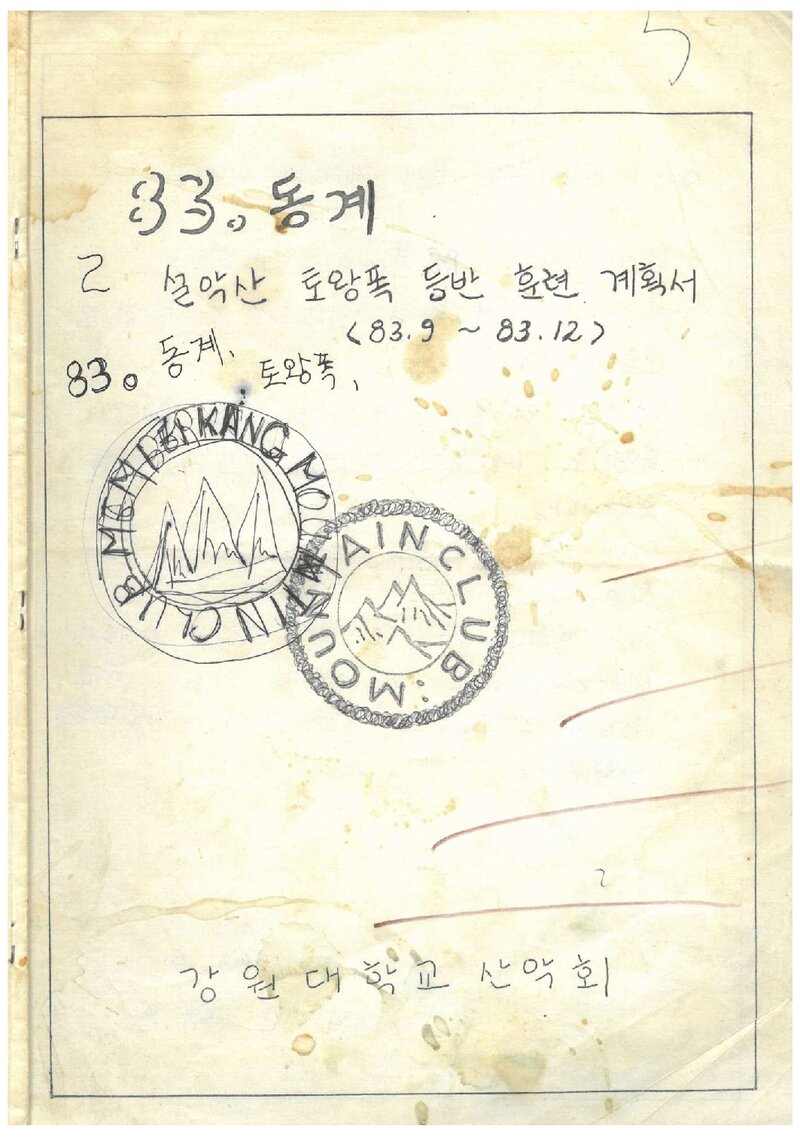 83. 동계
2 설악산 토왕폭 등반 훈련 계획서
<83.9 ~ 83.12>
83. 동계. 토왕폭.
KANG MOUNTAIN CLUB MEMBER
MOUNTAIN CLUB:
2
강원대학교 산악회